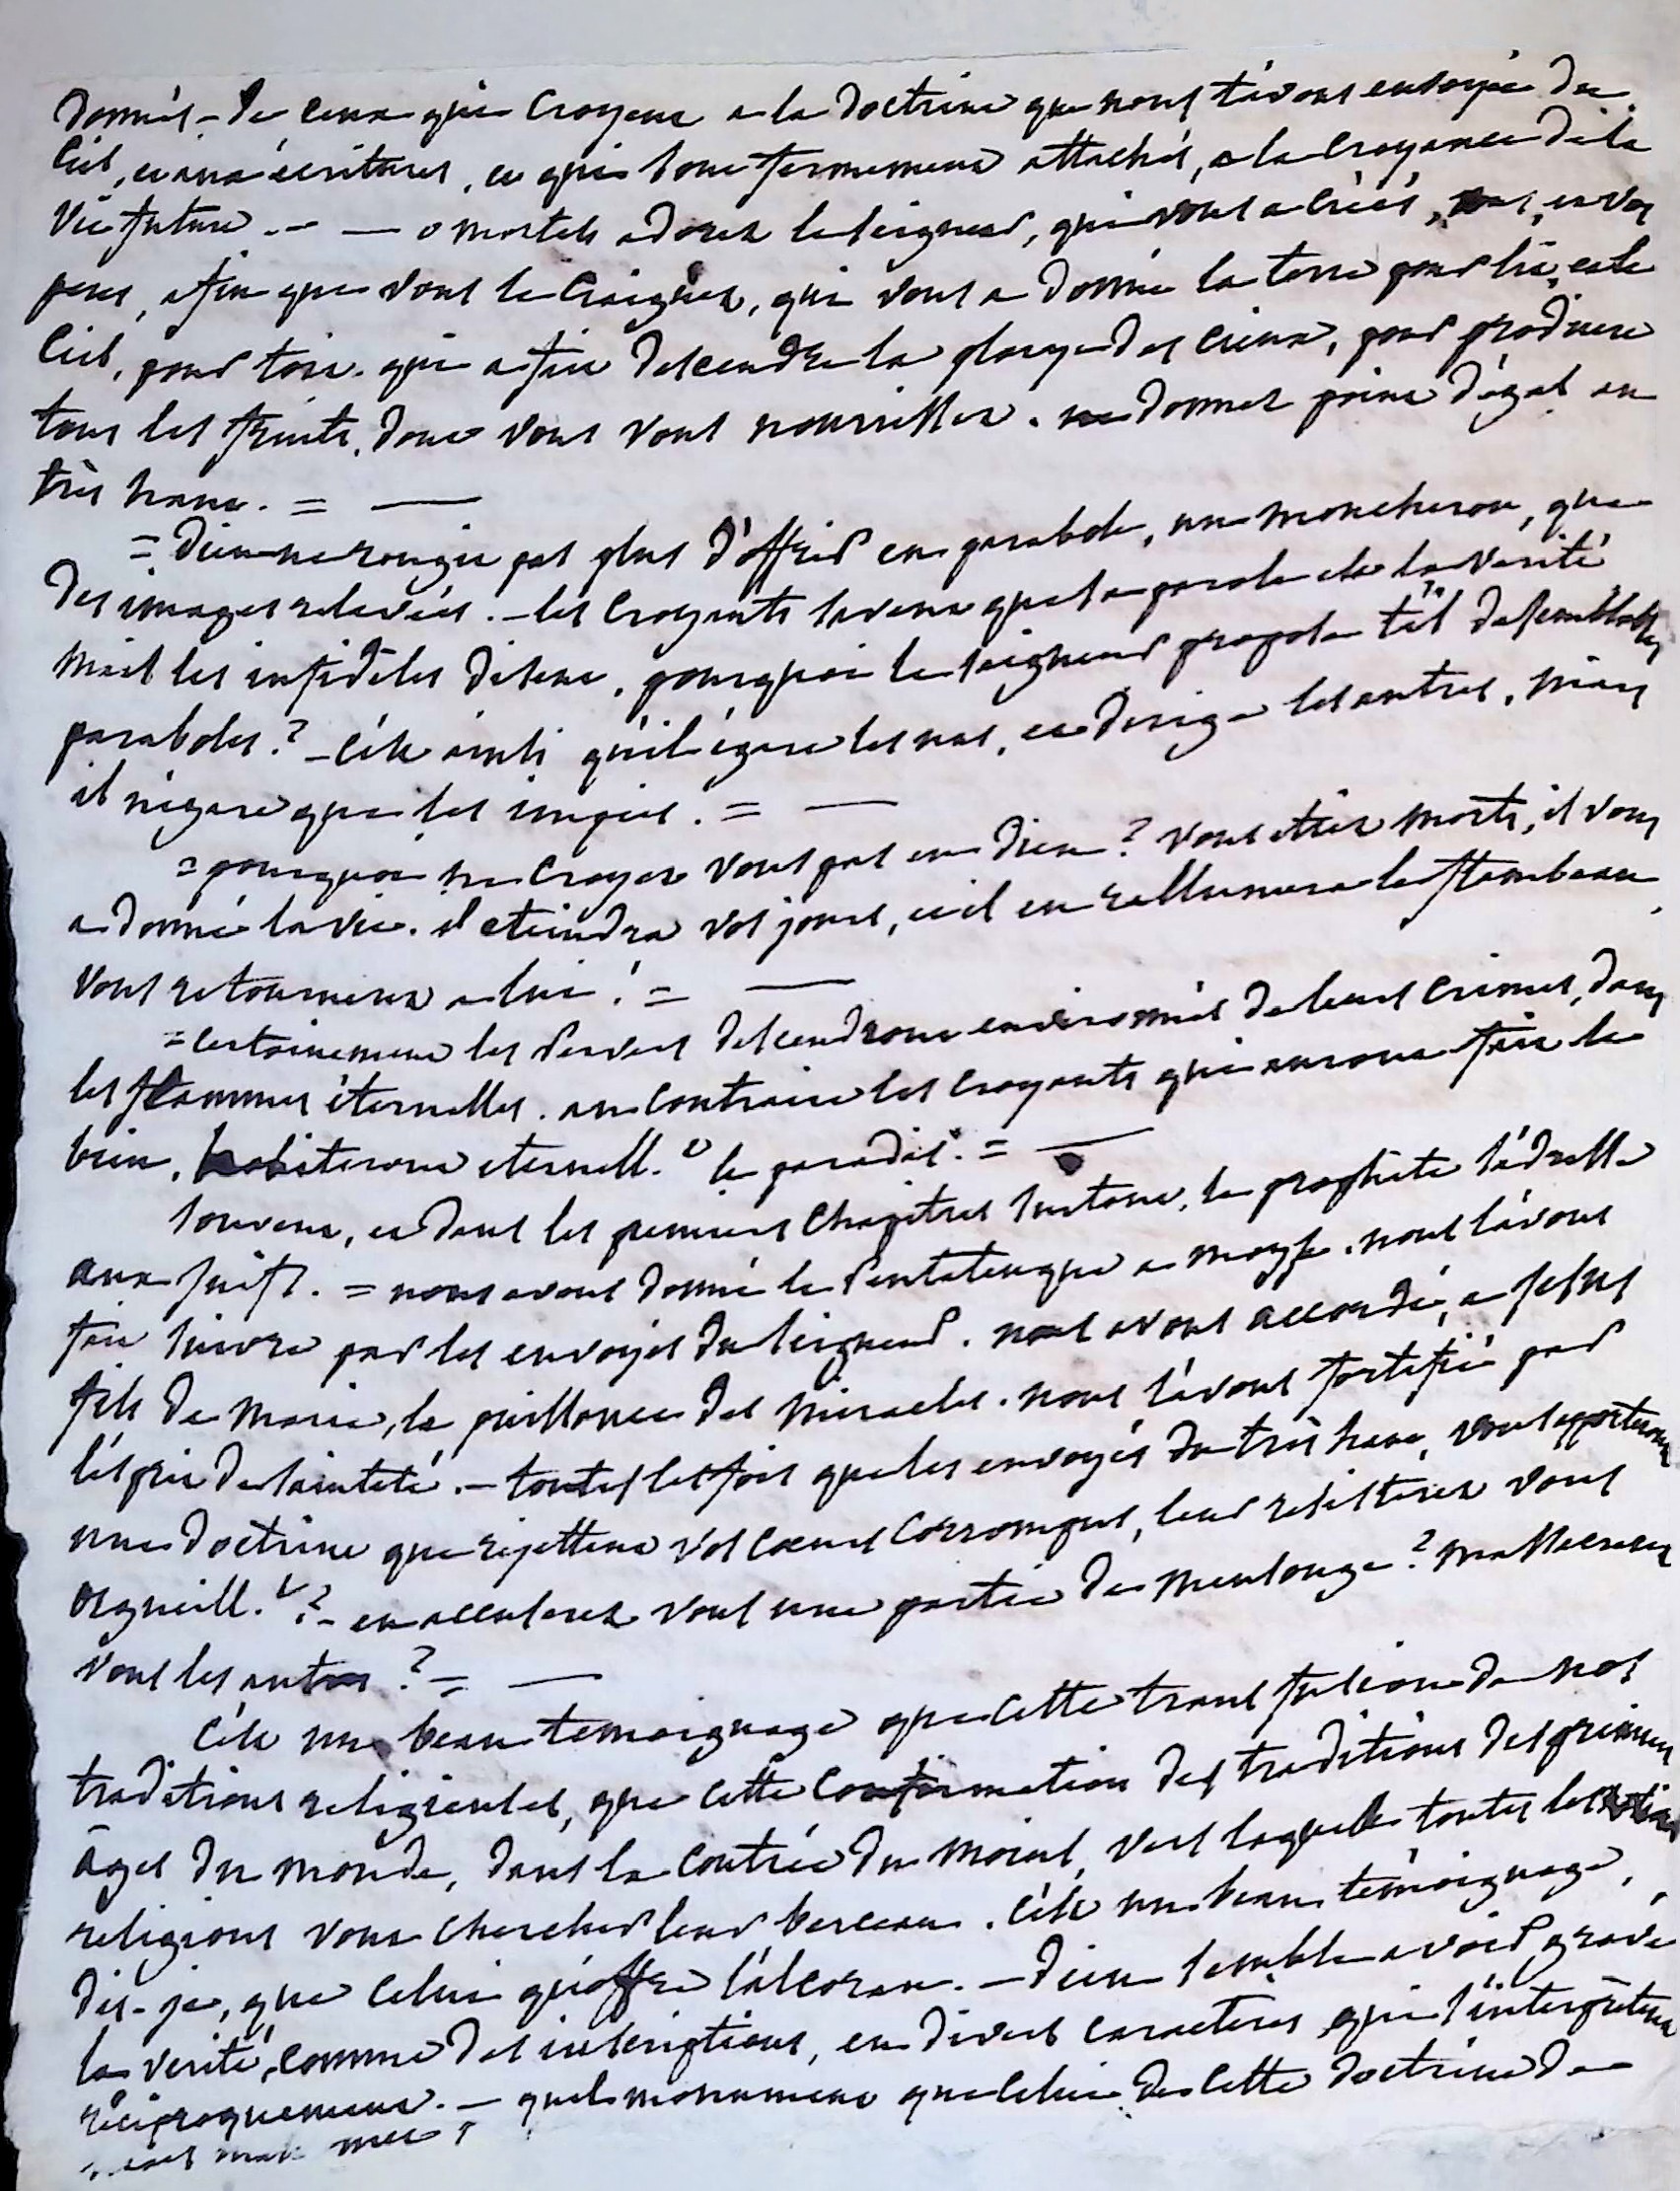 donnés - de ceux qui croyent a la doctrine que nous t'avons envoyée du
Ciel, et aux écritures, et qui sont fermement attachés, a la croyance de la
vie future. - — o mortels adorez le seigneur, qui vous a créés, et vos
peres, afin que vous le craigniez, qui vous a donné la terre pour lit, et le
Ciel, pour toit. qui a fait descendre la pluye des cieux, pour produire
tous les fruits, dont vous vous nourrissez. ne donnez point d'égal au
très haut. = —
= Dieu ne rougit pas plus d'offrir en parabole, un moucheron, que
des images relevées. - les croyants savent que la parole est la verité
mais les infideles disent, pourquoi le seigneur propose t'il de semblables
paraboles? - c'est ainsi qu'il égare les uns, et dirige les autres, mais
il n'égare que les impies. = —
= pourquoi ne croyez vous pas en dieu? vous etiez morts, il vous
a donné la vie. il eteindra vos jours, et il en rallumera le flambeau
vous retournerez a lui! = —
= certainement les pervers descendront environnés de leurs crimes, dans
les flammes éternelles. au contraire les croyants qui auront fait le
bien, habiteront eternell.t le paradis. = —
souvent, et dans les premiers chapitres surtout, le prophète s'adresse
aux juifs. = nous avons donné le Pentateuque a moyse. nous l'avons
fait suivre par les envoyés du seigneur. nous avons accordé, a Jesus
fils de marie, la puissance des miracles. nous l'avons fortifié par
l'esprit de sainteté. - toutes les fois que les envoyés du très haut, vous apporteront
une doctrine que rejettent vos coeurs corrompus, leur resisterez vous
orgueill.t? - en accuserez vous une partie de mensonge? massacrerez
vous les autres? = —
C'est un beau temoignage que cette transfusion de nos
traditions religieuses, que cette confirmation des traditions des premiers
âges du monde, dans la contrée du moins, vers laquelle toutes les
religions vont chercher leur berceau. c'est un beau témoignage,
dis-je, que celui qu'offre l'alcoran. - Dieu semble avoir gravé
la verité, comme des inscriptions, en divers caracteres qui s'interprètent
réciproquement. - quel monument que celui de cette doctrine de